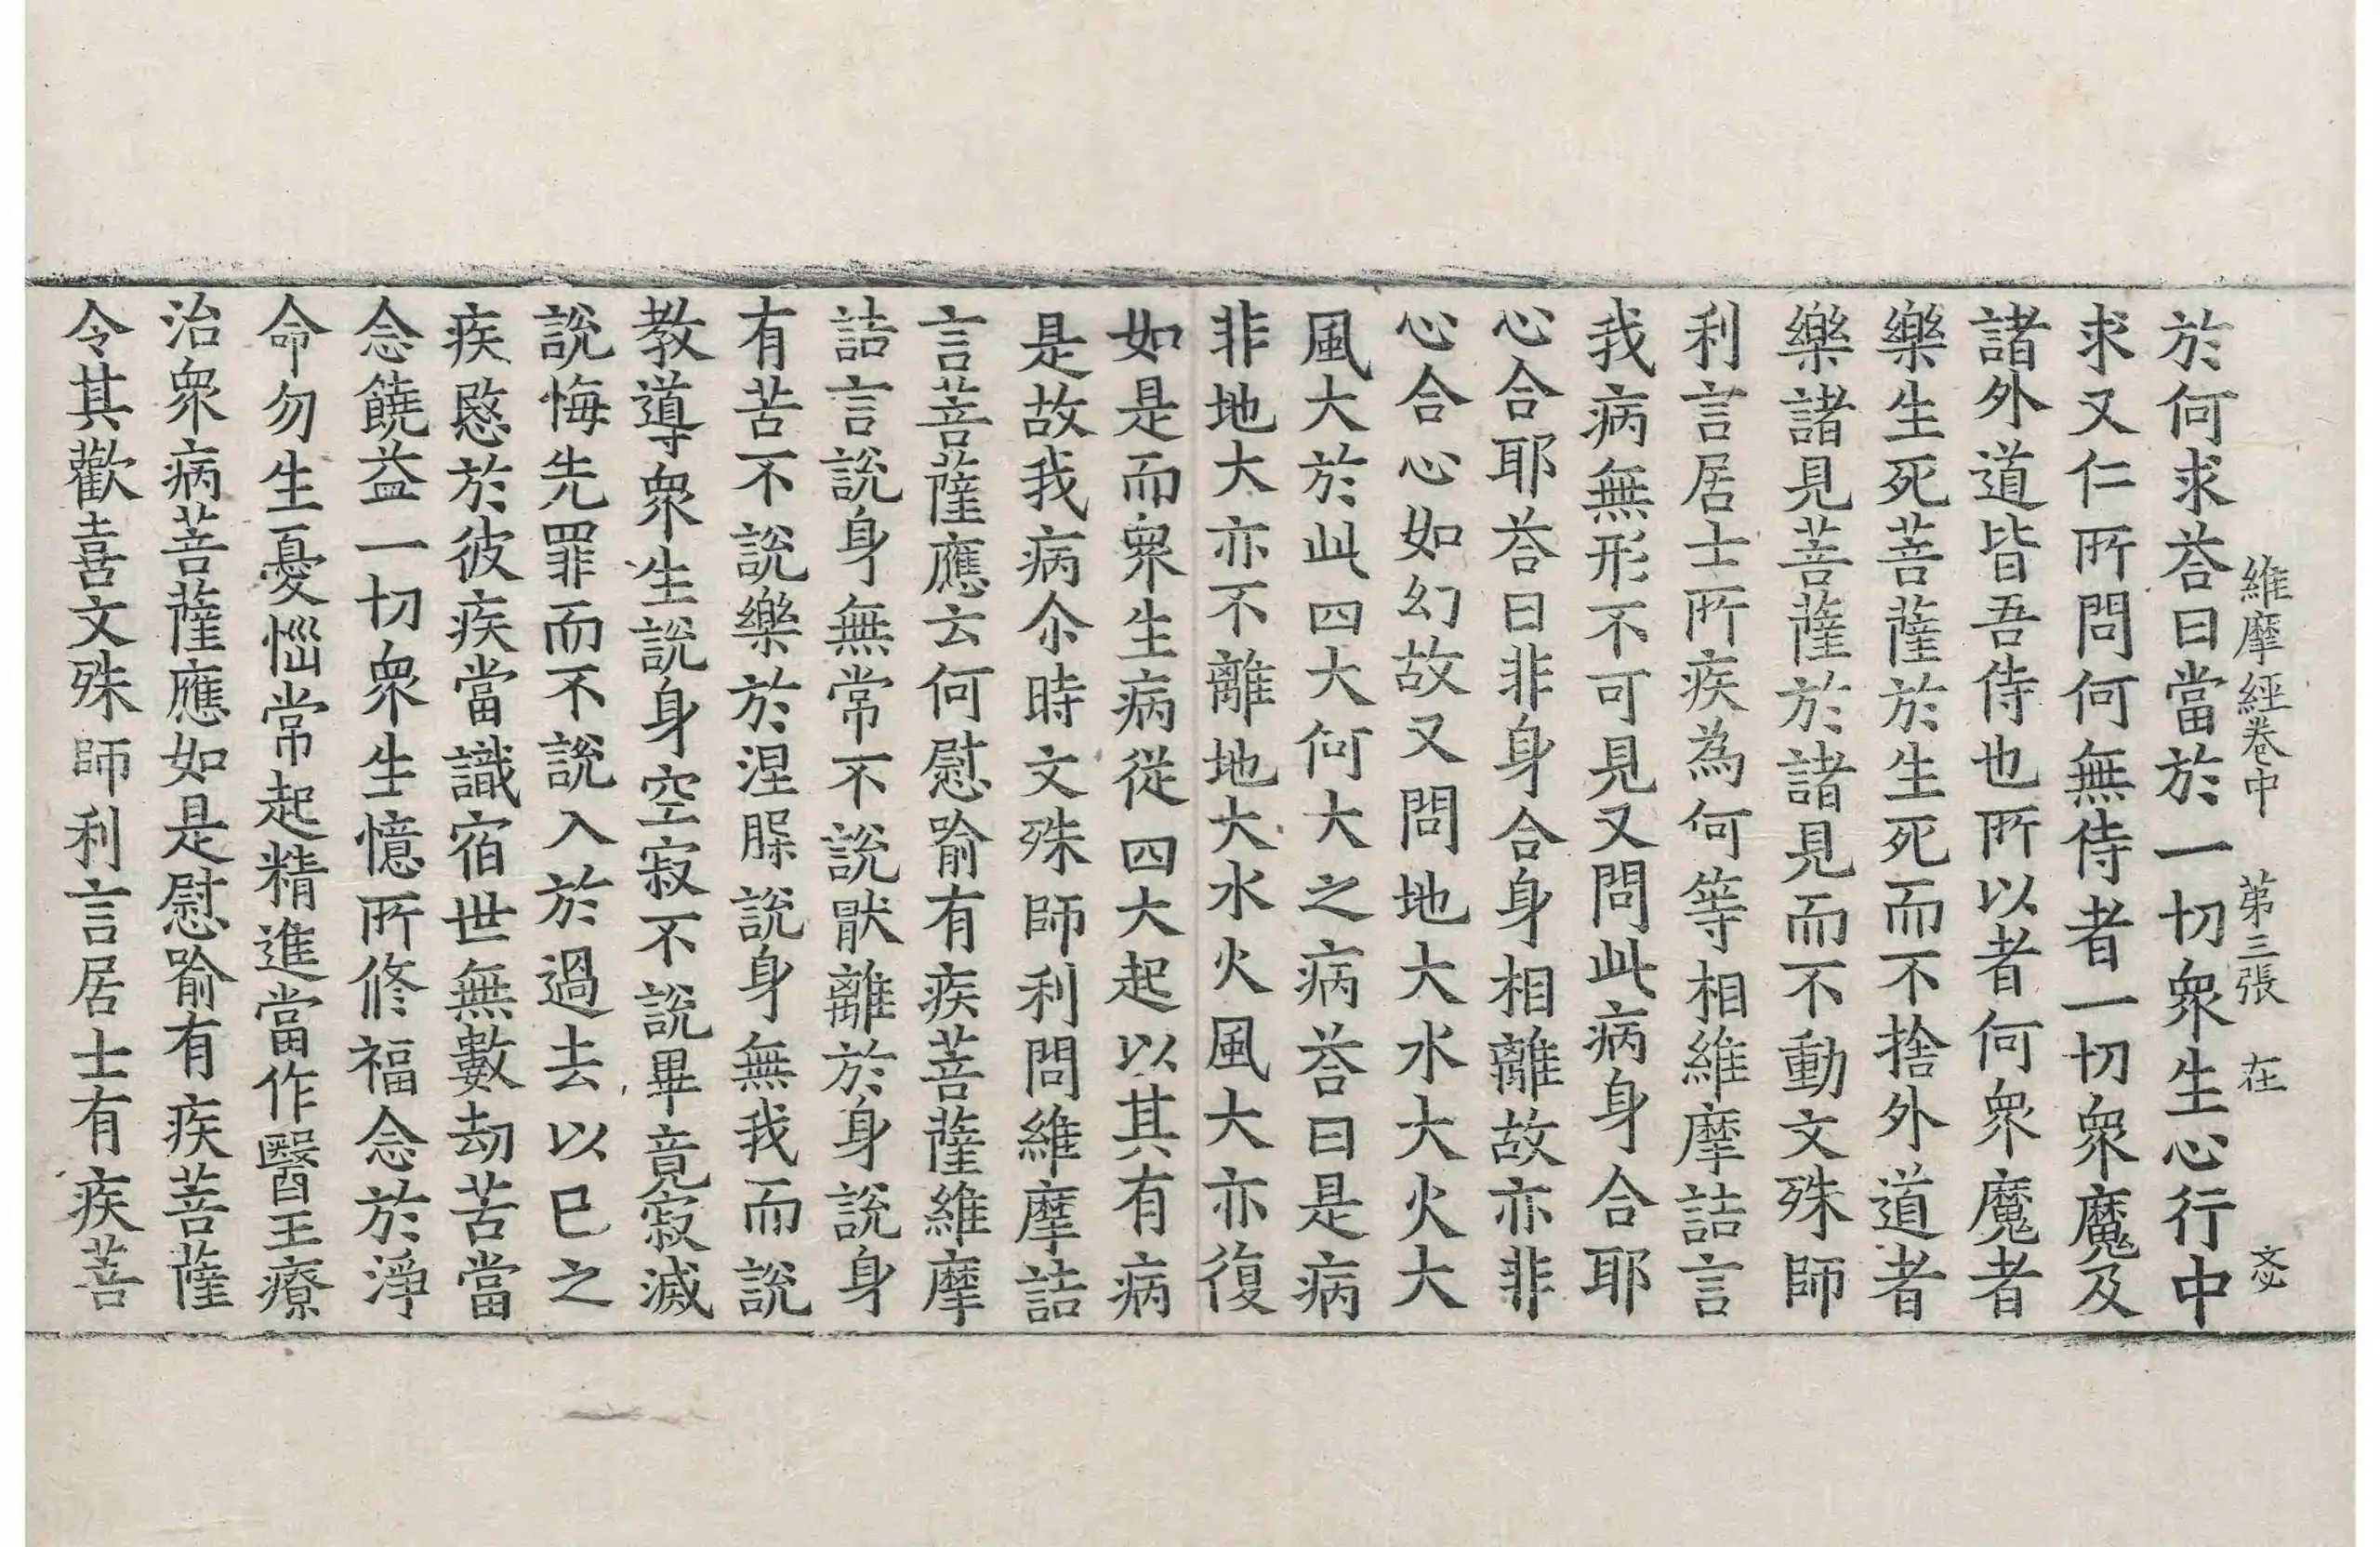 維摩經卷中 第三張 在 文
於何求荅曰當於一切衆生心行中
求又仁所問何無侍者一切衆魔及
諸外道皆吾侍也所以者何衆魔者
樂生死菩薩於生死而不捨外道者
樂諸見菩薩於諸見而不動文殊師
利言居士所疾為何等相維摩詰言
我病無形不可見又問此病身合耶
心合耶荅曰非身合身相離故亦非
心合心如幻故又問地大水大火大
風大於此四大何大之病荅曰是病
非地大亦不離地大水火風大亦復
如是而衆生病從四大起以其有病
是故我病尒時文殊師利問維摩詰
言菩薩應云何慰喻有疾菩薩維摩
詰言說身無常不說猒離於身說身
有苦不說樂於涅槃說身無我而說
教導衆生說身空寂不說畢竟寂滅
說悔先罪而不說入於過去以已之
疾愍於彼疾當識宿世無數劫苦當
念饒益一切衆生憶所修福念於淨
命勿生憂惱常起精進當作醫王療
治衆病菩薩應如是慰喻有疾菩薩
令其歡喜文殊師利言居士有疾菩